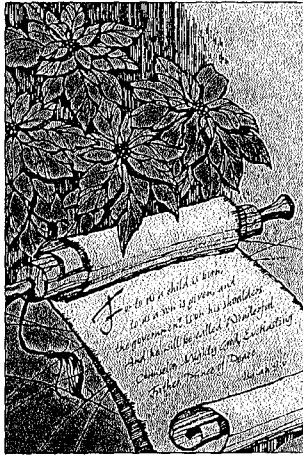 For to us a child is born,
to us a son is given; and
the government is on his shoulders.
And he will be called Wonderful
Counselor, Mighty God, Everlasting
Father, Prince of Peace.